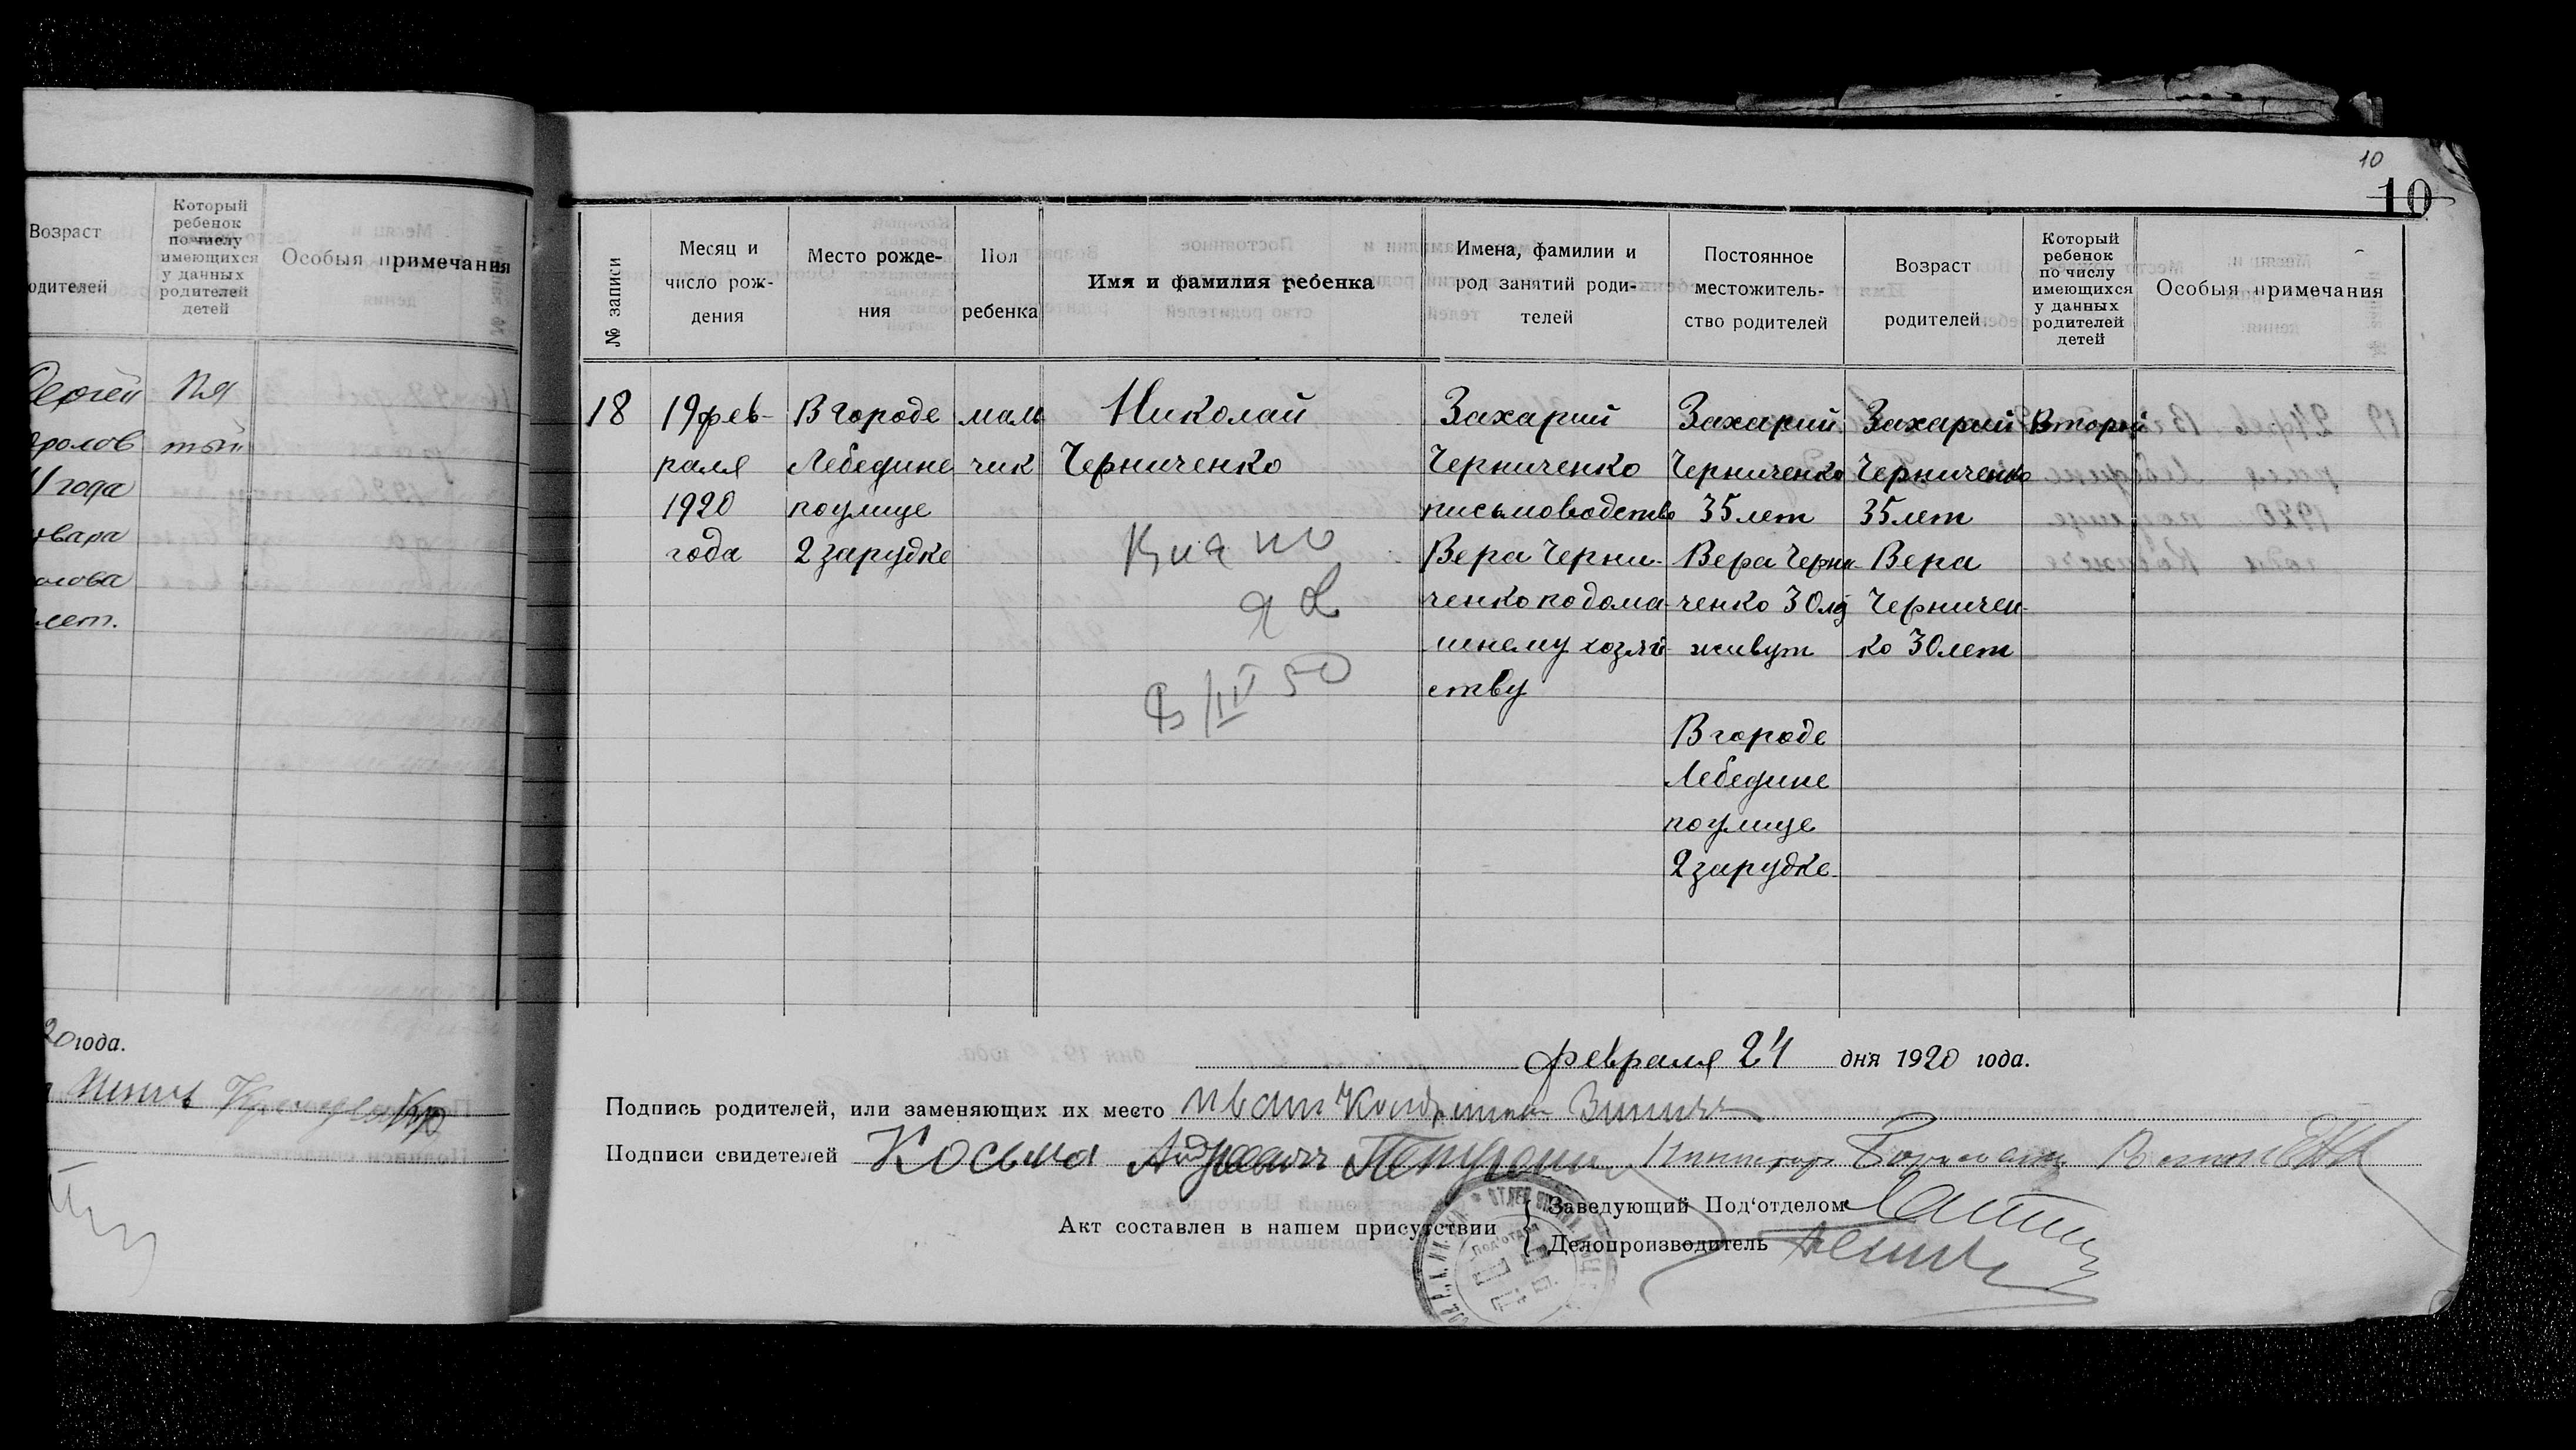 10
10
Возраст
одителей
Который
ребенок
по числу
имеющихся
у данных
родителей
детей
Особыя примечания
Сергей
ролов
11 года
нвара
олова
лет.
Пя
тый
20 года.
№ записи
Месяц и
число рож-
дения
Место рожде-
ния
Пол
ребенка
Имя и фамилия ребенка
Имена, фамилии и
род занятий роди-
телей
Постоянное
местожитель-
ство родителей
Возраст
родителей
Который
ребенок
по числу
имеющихся
у данных
родителей
детей
Особыя примечания
18
19 фев-
раля
1920
года
В городе
Лебедине
по улице
2 зарудке
маль
чик
Николай
Черниченко
IV 50
Захарий
Черниченко
письмоводство
Вера Черни-
ченко по дома-
шнему хозяй-
ству
Захарий
Черниченко
35 лет
Вера Черни-
ченко 30 ле
живут
В городе
Лебедине
по улице
2 зарудке
Захарий
Черниченко
35 лет
Вера
Черничен-
ко 30 лет
Второй
февраля 24 дня 1920 года.
Подпись родителей, или заменяющих их место Иван
Подписи свидетелей Косьма Андреевич
Акт составлен в нашем присутствии
Заведующий Под'отделом
Делопроизводитель